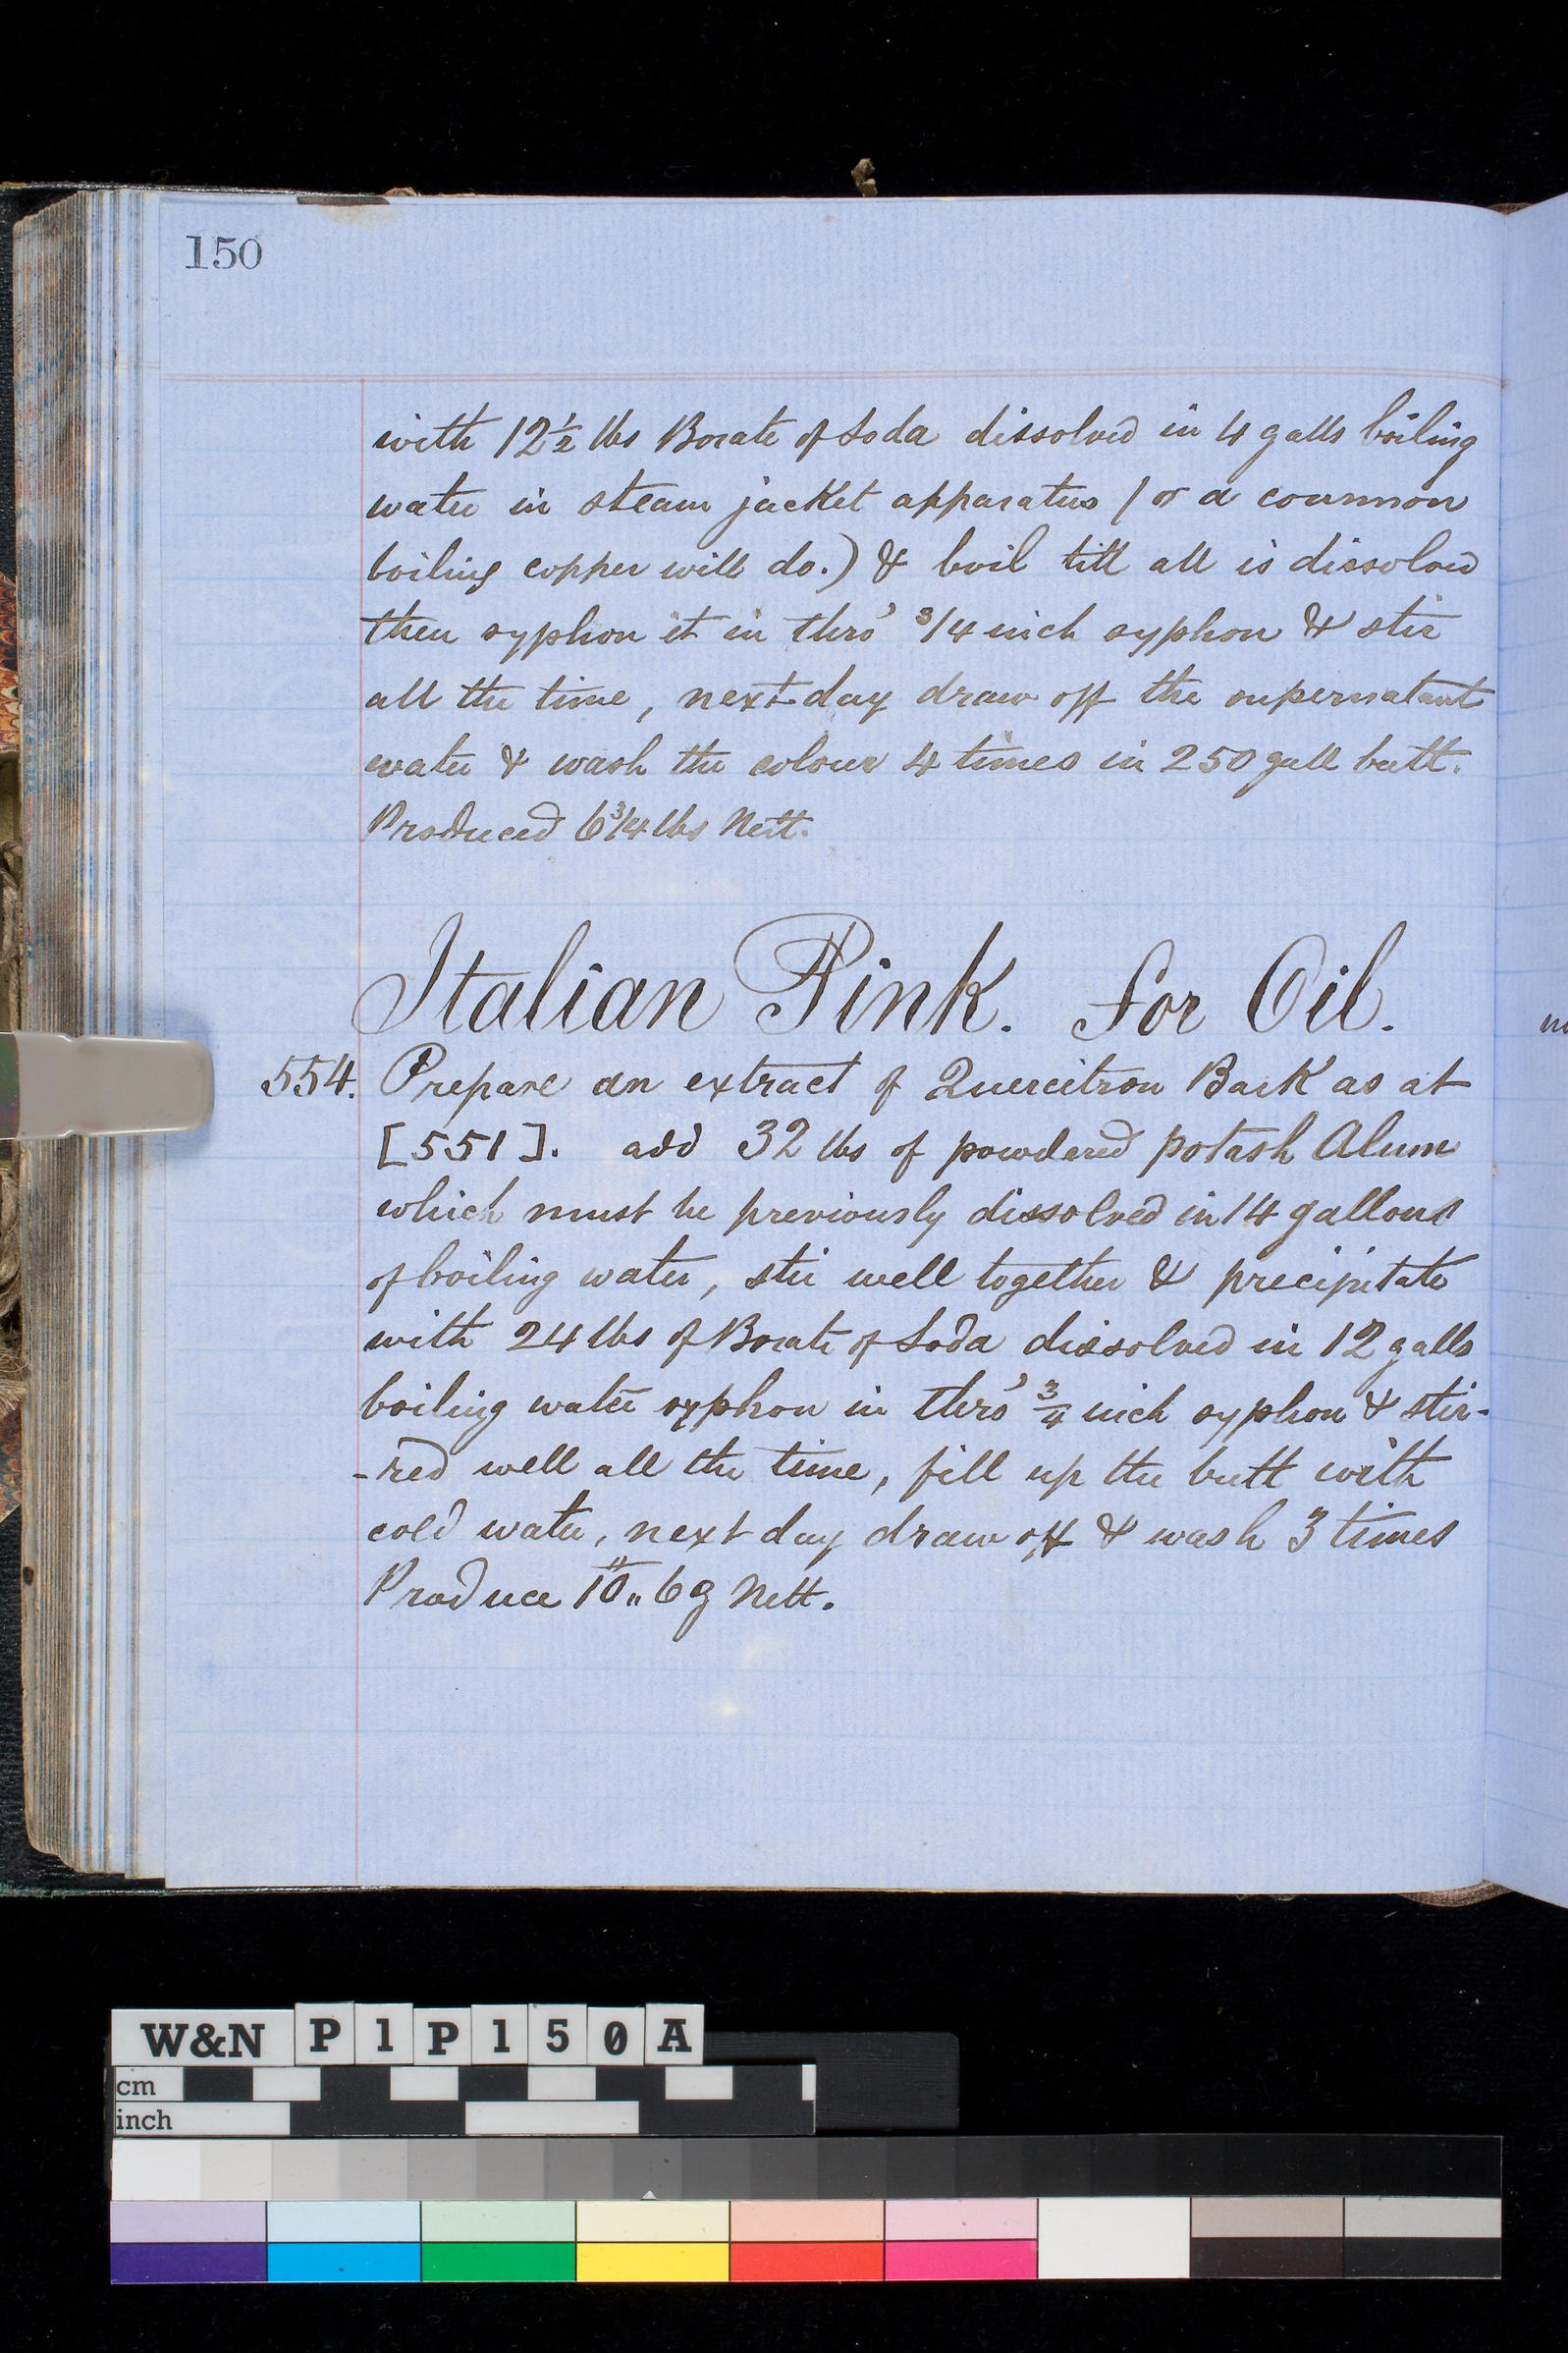 150
with 12½ lbs Borate of Soda dissolved in 4 galls boiling
water in steam jacket apparatus (or a common
boiling copper will do.) & boil till all is dissolved
then syphon it in thro' 3/4 inch syphon & stir
all the time, next day draw off the supernatant
water & wash the colour 4 times in 250 gall butt.
Produced 6 3/4 lbs Nett.
Italian Pink. for Oil.
554. Prepare an extract of Quercitron Bark as at
[551]. add 32 lbs of powdered potash Alum
which must be previously dissolved in 14 gallons
of boiling water, stir well together & precipitate
with 24 lbs of Borate of Soda dissolved in 12 galls
boiling water syphon in thro' 3/4 inch syphon & stir-
-red well all the time, fill up the butt with
cold water, next day draw off & wash 3 times
Produce 10 " 6 Nett.
W&N P1P150A
cm
inch